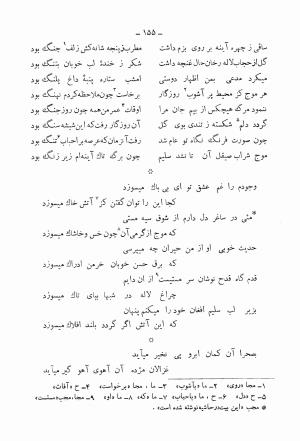 ـ ۱۵۵ ـ
ساقی ز چهره آینه بر روی بزم داشت مطرب ز پنجه شانه کش زلف چنگ بود
گل از حجاب لاله رخان حال غنچه داشت شکر ز خندهٔ لب خوبان بتنگ بود
میکرد مدعی بمن اظهار دوستی امشب ستاره پنبهٔ داغ پلنگ بود
هر موج کز محیط پر آشوب روزگار برخاست چون ملاحظه کردم نهنگ بود
ننمود مرگ هیچکس از بیم جان مرا اوقات عمر من همه چون روز جنگ بود
گردد دلم شکسته ز تندی بوی گل آن روزگار رفت که این شیشه سنگ بود
چون صورت فرنگ نگاه تو عام شد رفت آن زمان که عرصه بر احباب تنگ بود
موج شراب صیقل آن تا نشد سلیم چون برگ تاک آینه‌ام زیر زنگ بود
*
وجودم را غم عشق تو ای بی باک میسوزد
کجا این را توان گفتن کز آتش خاک میسوزد
*مئی در ساغر دل دارم از شوق سیه مستی
که موج از گرمی آن چون خس و خاشاک میسوزد
حدیث خوبی او از من حیران چه میپرسی
که برق حسن خوبان خرمن ادراک میسوزد
قدم گاه قدح نوشان سر مستیست از ان دایم
چراغ لاله در شبها بپای تاک میسوزد
بزیر لب سلیم افغان خود را میکنم پنهان
که این آتش اگر گردد بلند افلاک میسوزد
*
بصحرا آن کمان ابرو پی نخچیر میآید
غزالان مژده آن آهوی آهو گیر میآید
۱ـ مجا «روی» ۲ـ ما «بآشوب» ۳ـ ما، مجا «برخواست» ۴ـ ح «آفات»
۵ـ ح «دل» ۶ـ ح ، ما «باحباب» ۷ـ ما «که» ۸ـ ما «او» ۹ـ مجا، مجب «مستست»
* مجب «این بیت در حاشیه نوشته شده است» .